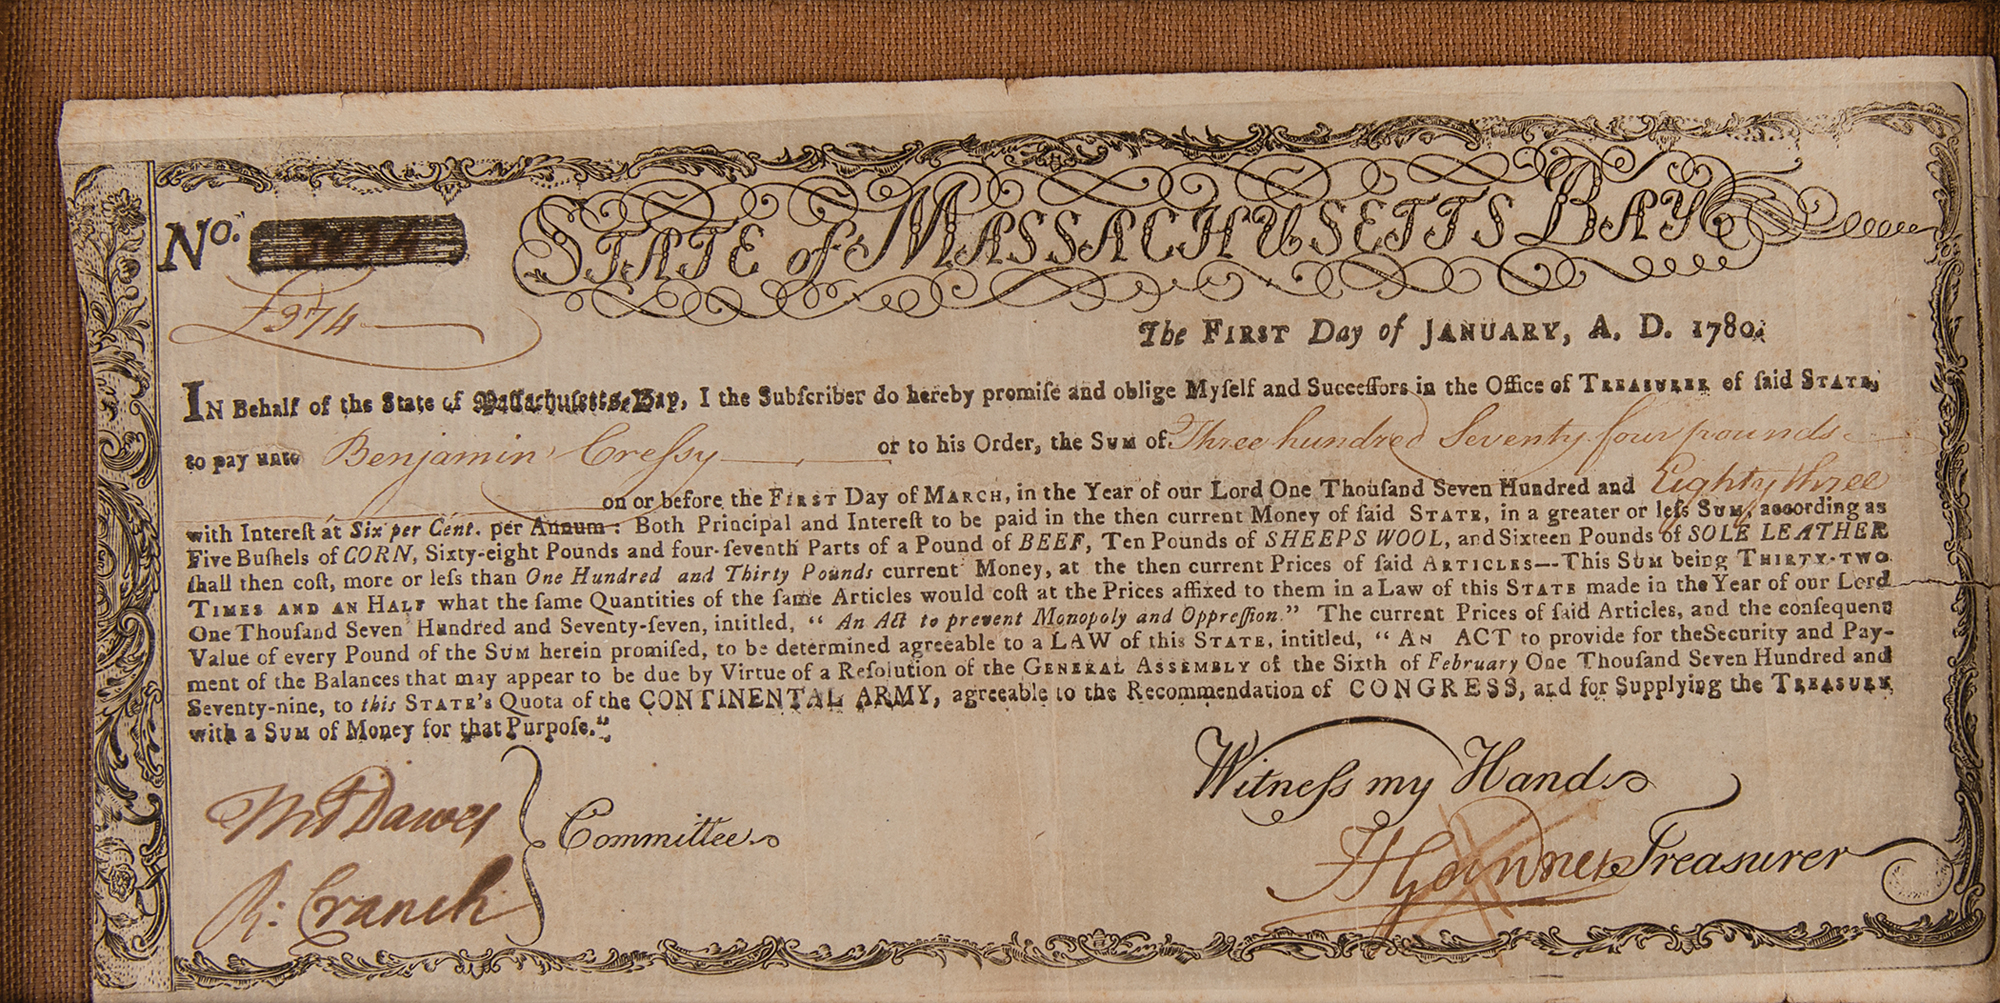 No.
STATE of MASSACHUSETTS BAY
£374
The FIRST Day of JANUARY, A. D. 1780.
IN Behalf of the State of Massachusetts-Bay, I the Subſcriber do hereby promiſe and oblige Myſelf and Succeſſors in the Office of TREASURER of ſaid STATE,
to pay unto Benjamin Creſsy or to his Order, the SUM of Three hundred Seventy four pounds
on or before the FIRST Day of MARCH, in the Year of our Lord One Thouſand Seven Hundred and Eighty three
with Intereſt at Six per Cent. per Annum: Both Principal and Intereſt to be paid in the then current Money of ſaid STATE, in a greater or leſs SUM, according as
Five Buſhels of CORN, Sixty-eight Pounds and four-ſeventh Parts of a Pound of BEEF, Ten Pounds of SHEEPS WOOL, and Sixteen Pounds of SOLE LEATHER
ſhall then coſt, more or leſs than One Hundred and Thirty Pounds current Money, at the then current Prices of ſaid ARTICLES—This SUM being THIRTY-TWO
TIMES AND AN HALF what the ſame Quantities of the ſame Articles would coſt at the Prices affixed to them in a Law of this STATE made in the Year of our Lord
One Thouſand Seven Hundred and Seventy-ſeven, intitled, “ An Act to prevent Monopoly and Oppreſſion.” The current Prices of ſaid Articles, and the conſequent
Value of every Pound of the SUM herein promiſed, to be determined agreeable to a LAW of this STATE, intitled, “ AN ACT to provide for the Security and Pay-
ment of the Balances that may appear to be due by Virtue of a Reſolution of the GENERAL ASSEMBLY of the Sixth of February One Thouſand Seven Hundred and
Seventy-nine, to this STATE'S Quota of the CONTINENTAL ARMY, agreeable to the Recommendation of CONGRESS, and for Supplying the TREASURY
with a SUM of Money for that Purpoſe.”
Witneſs my Hand
Dawes
Committee
R: Cranch
HGardner Treasurer